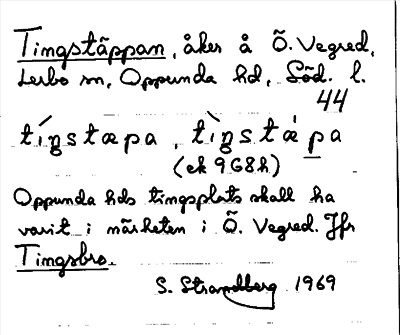 Tingstäppan, åker å Ö. Vegred,
Lerbo sn, Oppunda hd, Söd. l.
44
tíŋstæpa, tìŋstǽpa
(ek 968h)
Oppunda hds tingsplats skall ha
varit i närheten i Ö. Vegred. Jfr
Tingsbro.
S. Strandberg 1969